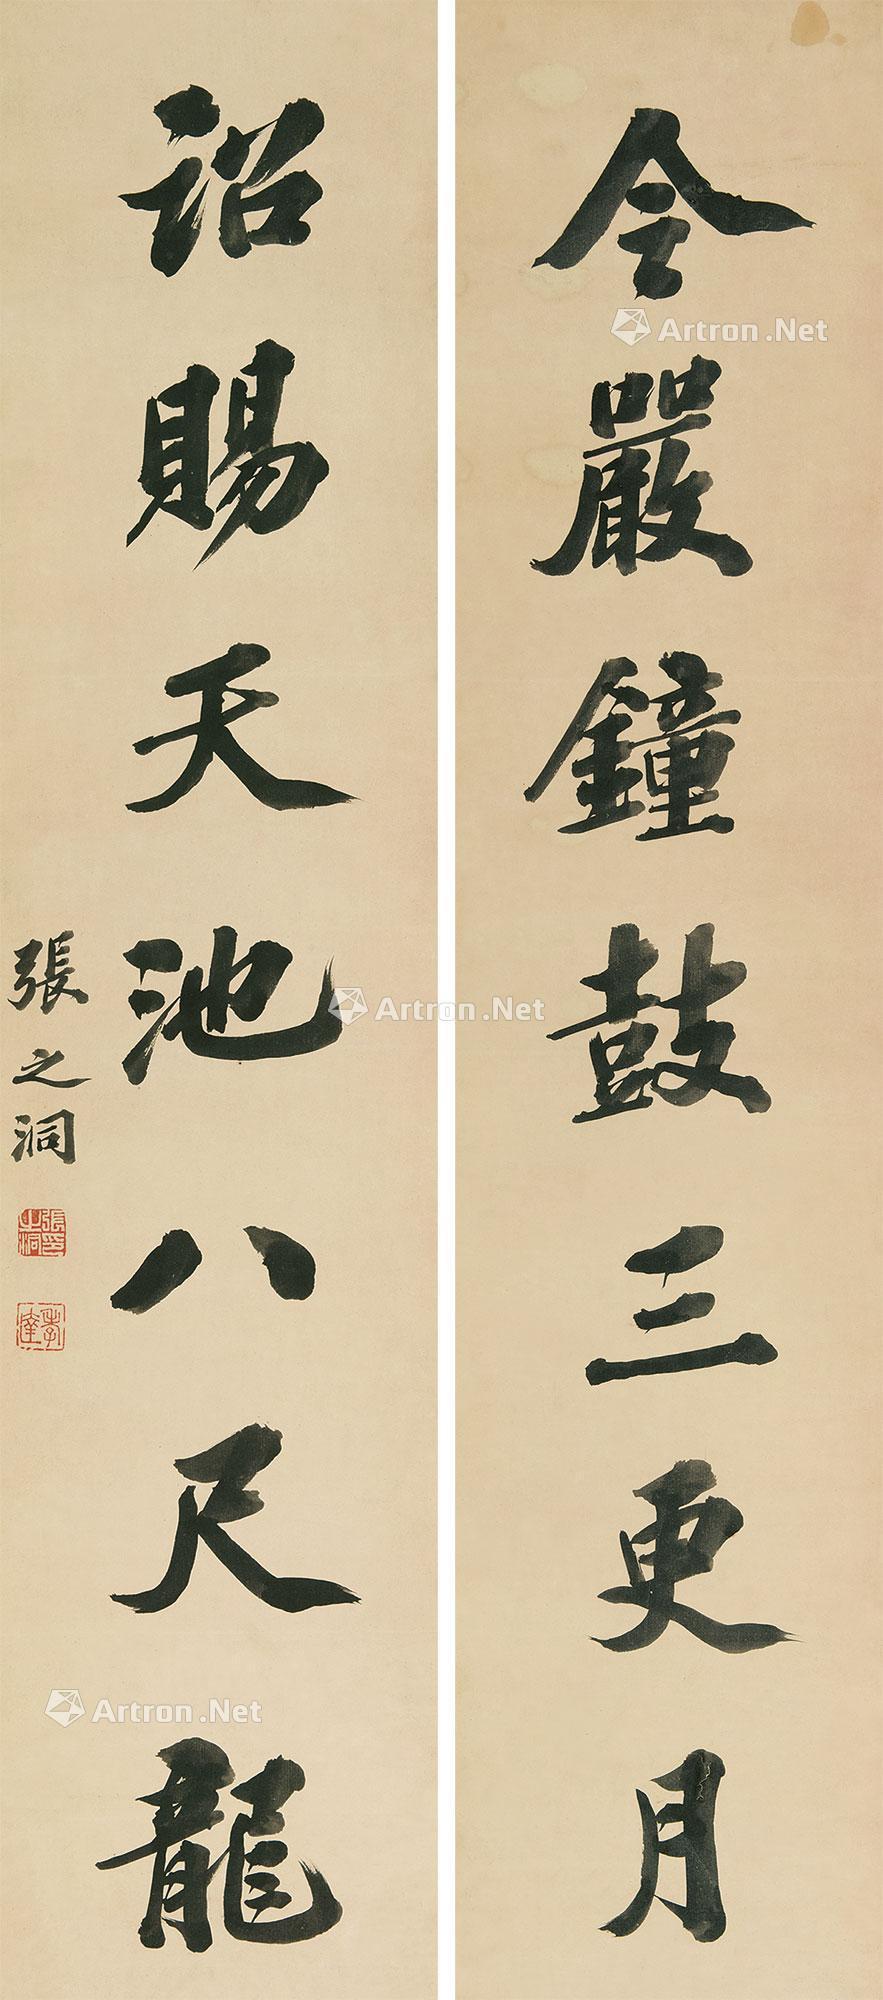 令嚴鐘鼓三更月
詔賜天池八尺龍
張之洞
張之洞印
孝達
Artron.Net
Artron.Net
Artron.Net